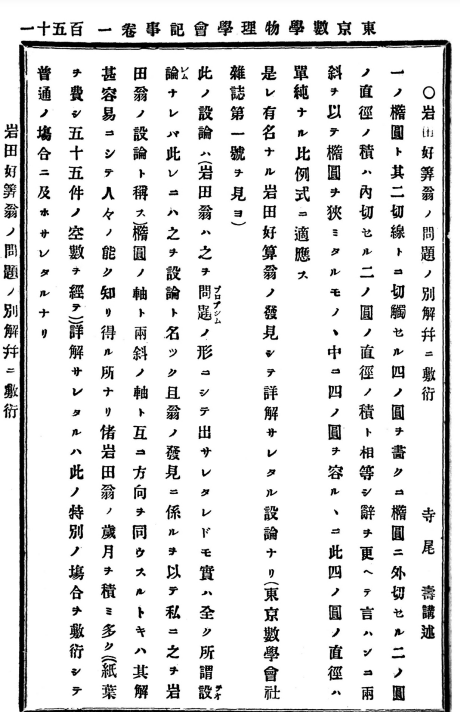 東京數學物理學會記事卷一 百五十一
〇岩田好算翁ノ問題ノ別解幷ニ敷衍
寺尾 壽講述
一ノ橢圓ト其二切線トニ切觸セル四ノ圓ヲ畵クニ橢圓ニ外切セル二ノ圓
ノ直徑ノ積ハ內切セル二ノ圓ノ直徑ノ積ト相等シ辭ヲ更ヘテ言ハンニ兩
斜ヲ以テ橢圓ヲ狹ミタルモノヽ中ニ四ノ圓ヲ容ルヽニ此四ノ圓ノ直徑ハ
單純ナル比例式ニ適應ス
是レ有名ナル岩田好算翁ノ發見シテ詳解サレタル設論ナリ(東京數學會社
雜誌第一號ヲ見ヨ)
此ノ設論ハ(岩田翁ハ之ヲ問題プロブレムノ形ニシテ出サレタレドモ實ハ全ク所謂設テオ
論レムナレバ此レニハ之ヲ設論ト名ツク且翁ノ發見ニ係ルヲ以テ私ニ之ヲ岩
田翁ノ設論ト稱ス)橢圓ノ軸ト兩斜ノ軸ト互ニ方向ヲ同ウスルトキハ其解
甚容易ニシテ人々ノ能ク知リ得ル所ナリ偖岩田翁ノ歲月ヲ積ミ多ク(紙葉
ヲ費シ五十五件ノ空數ヲ經テ)詳解サレタルハ此ノ特別ノ塲合ヲ敷衍シテ
普通ノ塲合ニ及ホサレタルナリ
岩田好算翁ノ問題ノ別解幷ニ敷衍